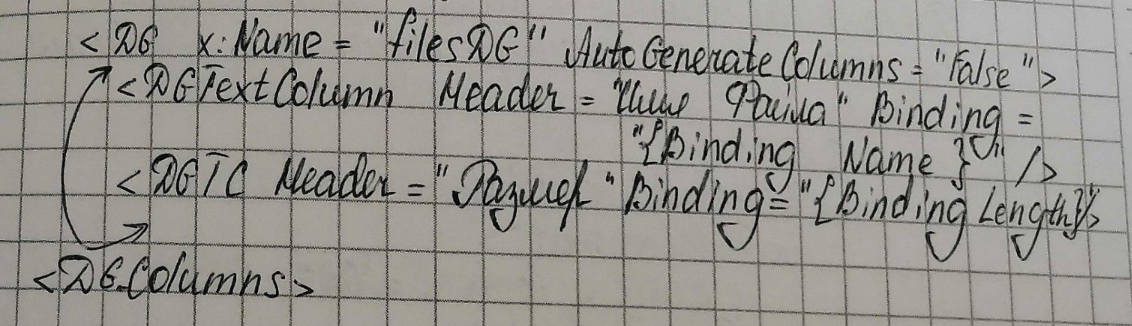 <DG x:Name = "filesDG" AutoGenerateColumns = "False">
<DGTextColumn Header = "Имя Файла" Binding =
"{Binding Name}" />
<DGTC Header = "Размер" Binding = "{Binding Length}"/>
<DG.Columns>